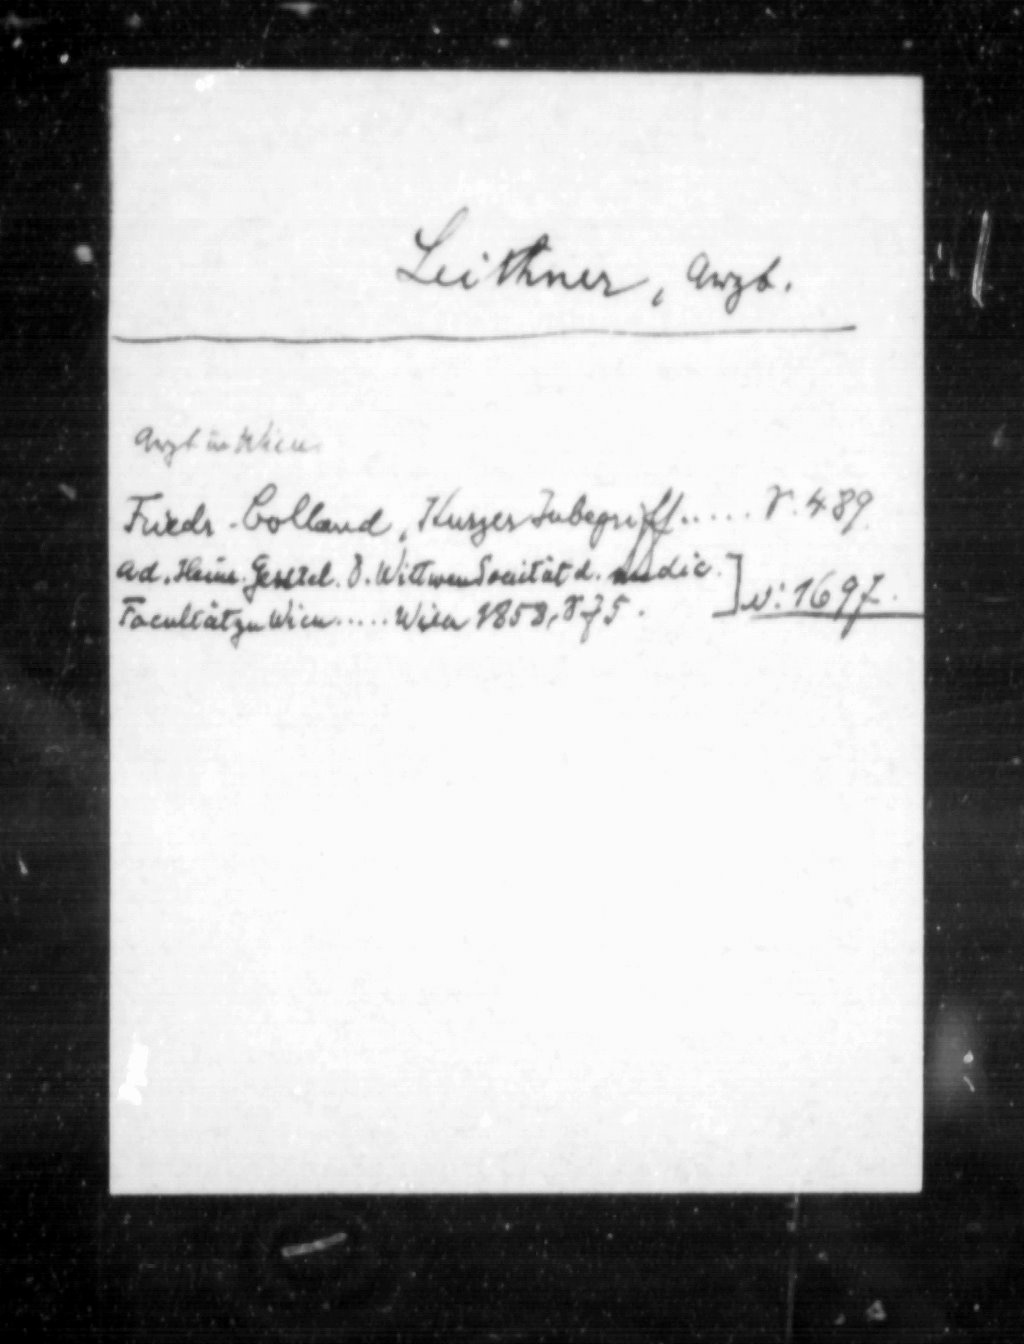 Leithner, Arzt.
Arzt in Wien.
Friedr. Colland, Kurzer Inbegriff..... S. 489.
Ad. Heinr. Gesch. d. Wittwen Societät d. medic.
Facultät zu Wien..... Wien 1858, S 75.
N: 1697.